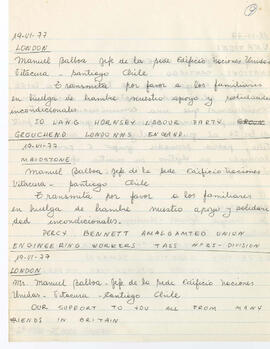 19-VI-77
LONDON
Manuel Balboa. Jefe de la sede Edificio Naciones Unidas
Vitacura - Santiago Chile
Transmita por favor a los familiares
en huelga de hambre nuestro apoyo y solidaridad
incondicionales
JO LANG HORNSBY LABOUR PARTY
GROUCHEND LONDONN8 ENGLAND
19-VI-77
MAIDSTONE
Manuel Balboa - Jefe de la sede Edificio Naciones
Vitacura - Santiago Chile
Transmita por favor a los familiares
en huelga de hambre nuestro apoyo y solidari
dad incondicionales.
PERCY BENNETT AMALGAMTED UNION
ENGINEERING WORKERS TASS DIVISION
19-VI-77
LONDON
Mr. Manuel Balboa - Jefe de la sede Edificio Naciones
Unidas - Vitacura - Santiago Chile
OUR SUPPORT TO YOU ALL FROM MANY
RIENDS IN BRITAIN